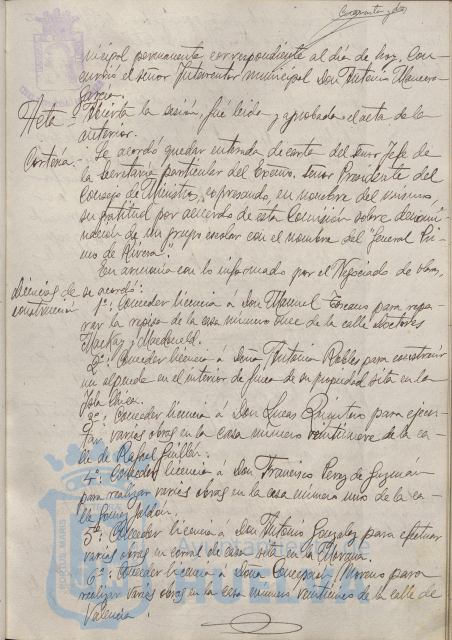 Cuarenta y dos
nicipal permanente correspondiente al día de hoy. Con-
currió el señor Interventor municipal Don Antonio Mancera
García.
Acta.- Abierta la sesión, fué leída y aprobada el acta de la
anterior.
Cortesía.- Se acordó quedar enterada de carta del señor Jefe de
la Secretaría particular del Excmo. señor Presidente del
Consejo de Ministros, expresando, en nombre del mismo
su gratitud por acuerdo de esta Comisión sobre denomi-
nación de un grupo escolar con el nombre del "General Pri-
mo de Rivera".
En armonía con lo informado por el Negociado de obras,
Licencias de construcción se acordó:
1º: Conceder licencia á Don Manuel para repa-
rar la repisa de la casa número once de la calle Doctores
Mackay y Macdonald.
2º: Conceder licencia á Doña Antonia Robles para construir
un alpende en el interior de finca de su propiedad sita en la
Isla Chica.
3º: Conceder licencia á Don Lucas Quintero para ejecu-
tar varias obras en la casa número veintinueve de la ca-
lle de Rafael Guillén.
4º: Conceder licencia á Don Francisco Perez de Guzmán
para realizar varias obras en la casa número uno de la ca-
lle Gómez Jaldón.
5º: Conceder licencia á Don Antonio Gonzalez para efectuar
varias obras en corral de casa sita en la
6º: Conceder licencia á Doña Concepción Moreno para
realizar varias obras en la casa número de la calle de
Valencia.
PORTUS MARIS
Ayuntamiento de
HUELVA